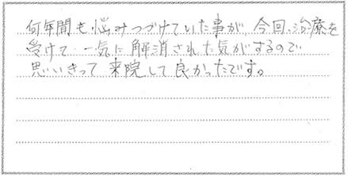 何年間も悩みつづけていた事が、今回、治療を
受けて 一気に解消された気がするので
思いきって 来院して良かったです。